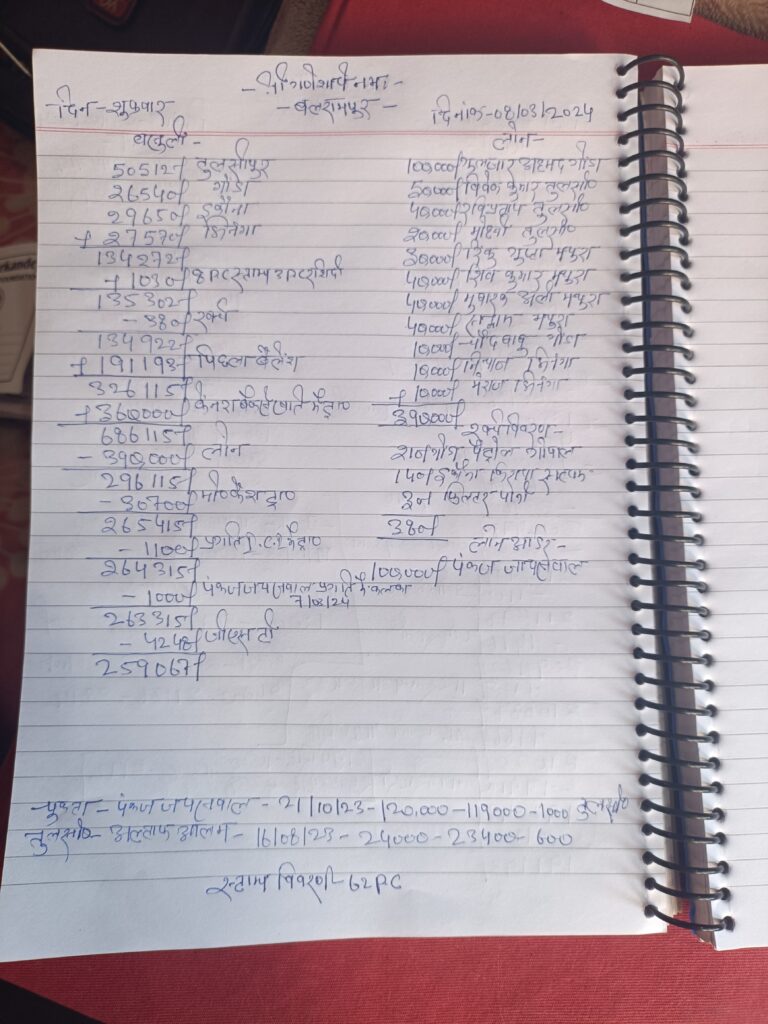 श्री गणेशाये नमः
दिन - शुक्रवार
- बलरामपुर -
दिनांक - 08/03/2024
वसुली -
50512/ तुलसीपुर
26540/ गोंडा
29650/ इकौना
+ 27570/ भिनगा
134272/
+ 1030/ 8 PC स्टाम्प 3 PC
135302/
- 380/ खर्च
134922/
+ 191193/ पिछला बैलेंश
326115/
+ 360000/
686115/
- 390000/ लोन
296115/
- 30700/
265415/
- 1100/ प्रगति
264315/
- 1000/ पंकज जायसवाल प्रगति में
7/03/24
263315/
- 4248/ जीएसटी
259067/
लोन -
100000/ अहमद गोंडा
50000/ विवेक कुमार तुलसी०
40000/ रविप्रताप तुलसी०
20000/ तुलसी०
30000/ रिंकु गुप्ता मथुरा
40000/ शिव कुमार मथुरा
40000/ मुबारक अली मथुरा
40000/ मथुरा
10000/ चाँद बाबु गोंडा
10000/ भिनगा
+ 10000/ मेराज भिनगा
390000/
खर्च विवरण -
पैट्रोल गोपाल
140/ इकौना किराया
30/ फिल्टर पानी
380/
लोन आडर -
100000/ पंकज जायसवाल
पंकज जायसवाल - 21/10/23 - 120,000 - 119000 - 1000 तुलसी०
तुलसी० - अल्ताफ आलम - 16/08/23 - 24000 - 23400 - 600
स्टाम्प विवरण - 62 PC